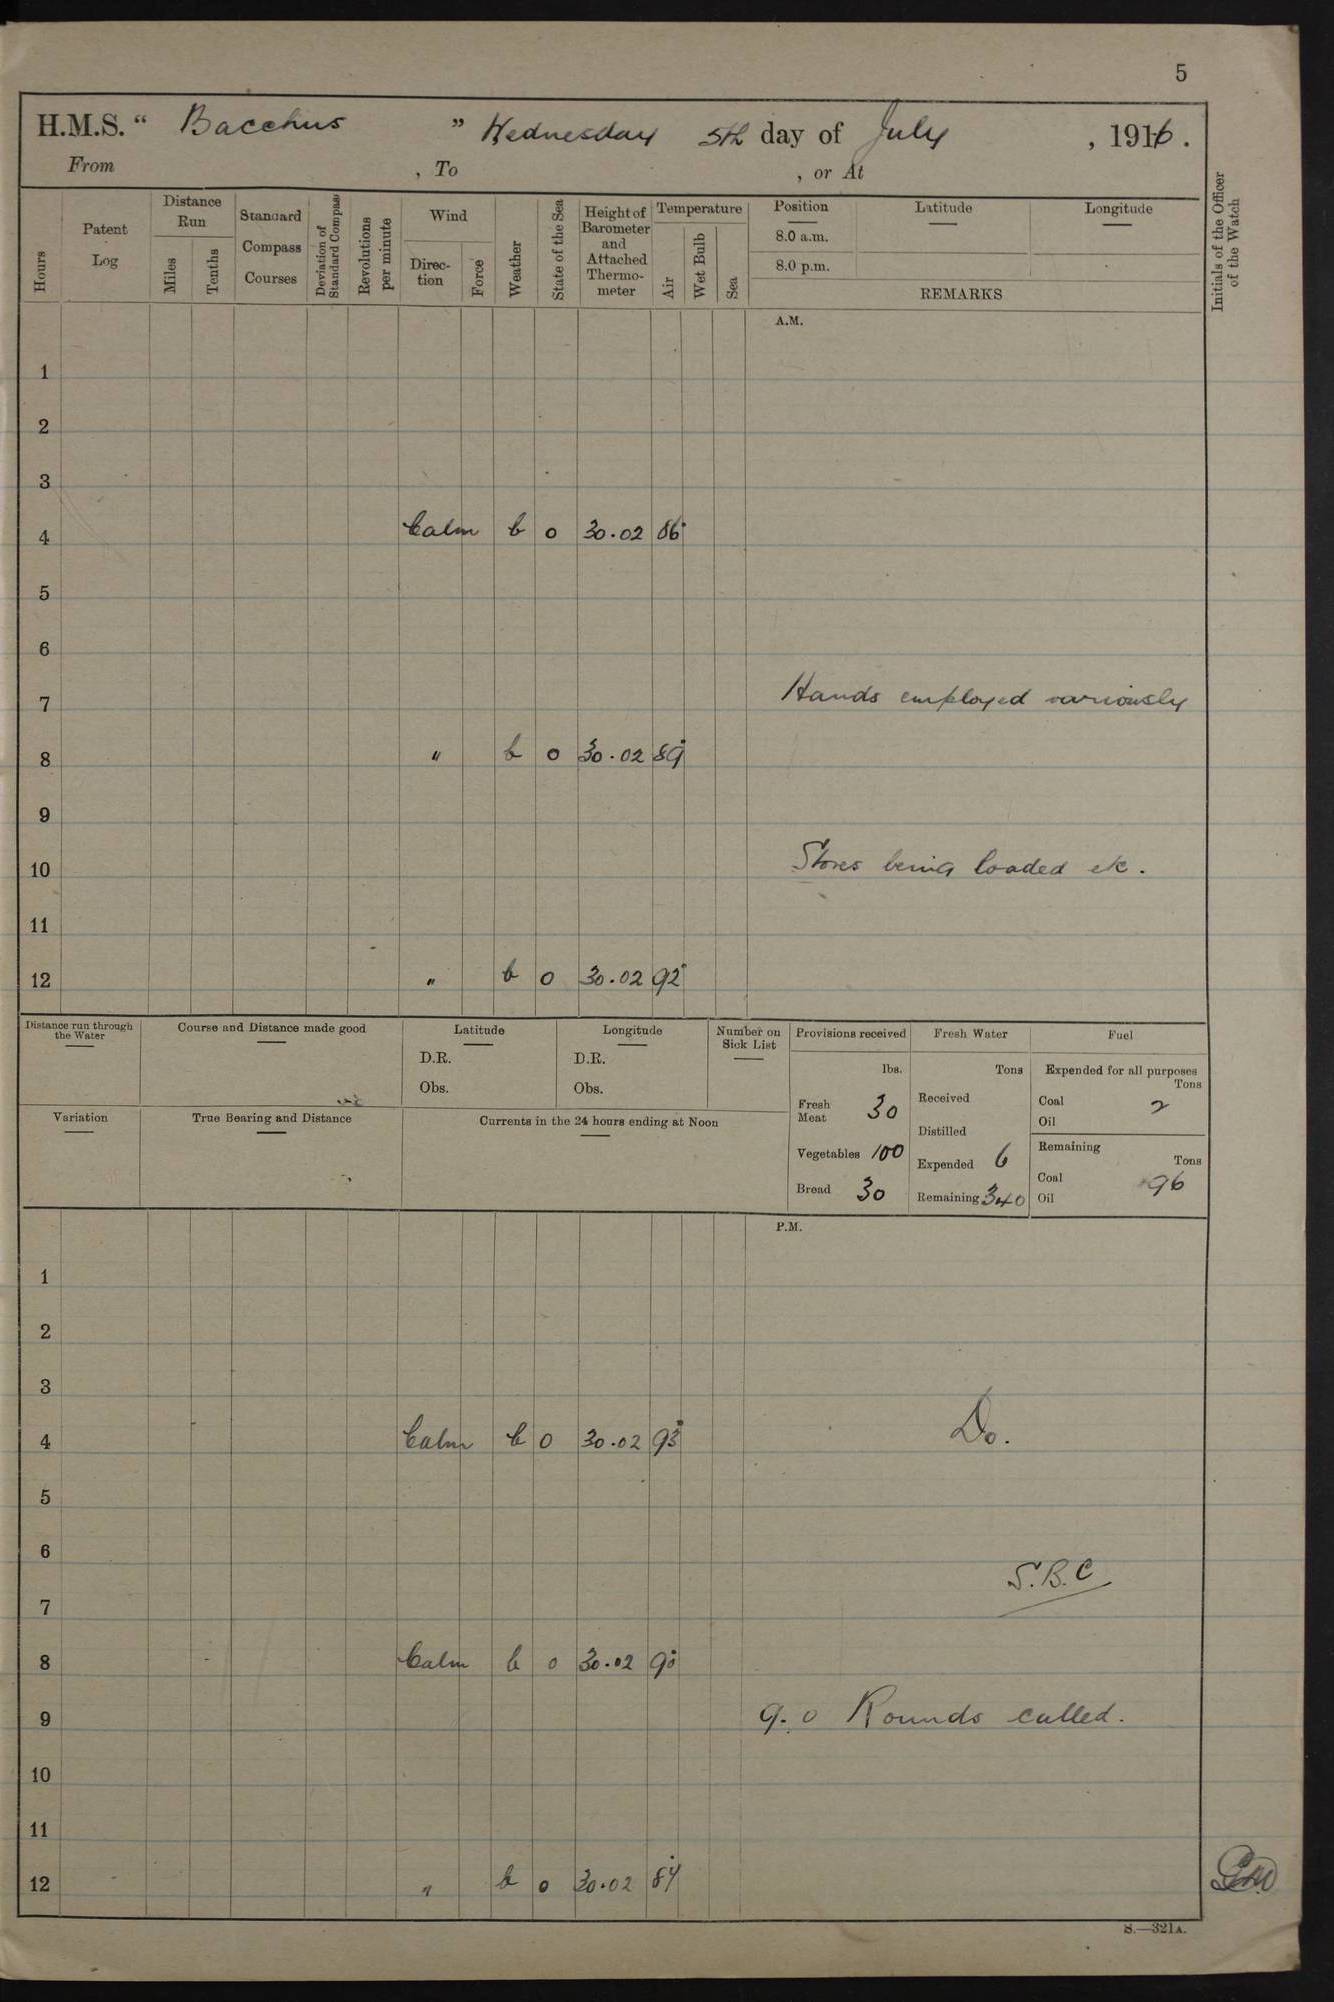 5
H.M.S. “ Bacchus ” Wednesday 5th day of July , 1916 .
From , To , or At
Hours
Patent Log
Distance Run
Miles
Tenths
Standard Compass Courses
Deviation of Standard Compass
Revolutions per minute
Wind
Direc-tion
Force
Weather
State of the Sea
Height of Barometer and Attached Thermo-meter
Temperature
Air
Wet Bulb
Sea
Position
8.0 a.m.
8.0 p.m.
Latitude
Longitude
REMARKS
Initials of the Officer of the Watch
A.M.
1
2
3
4 Calm b o 30.02 86°
5
6
7 Hands employed variously
8 " b o 30.02 89°
9
10 Stores being loaded etc.
11
12 " b o 30.02 92°
Distance run through the Water
Course and Distance made good
Latitude
D.R.
Obs.
Longitude
D.R.
Obs.
Number on Sick List
Variation
True Bearing and Distance
Currents in the 24 hours ending at Noon
Provisions received
lbs.
Fresh Meat 30
Vegetables 100
Bread 30
Fresh Water
Tons
Received
Distilled
Expended 6
Remaining 340
Fuel
Expended for all purposes
Tons
Coal 2
Oil
Remaining
Tons
Coal 96
Oil
P.M.
1
2
3
4 Calm b o 30.02 93° Do.
5
6
S.B.C
7
8 Calm b o 30.02 90°
9 9.0 Rounds called.
10
11
12 " b o 30.02 84°
S.—321A.